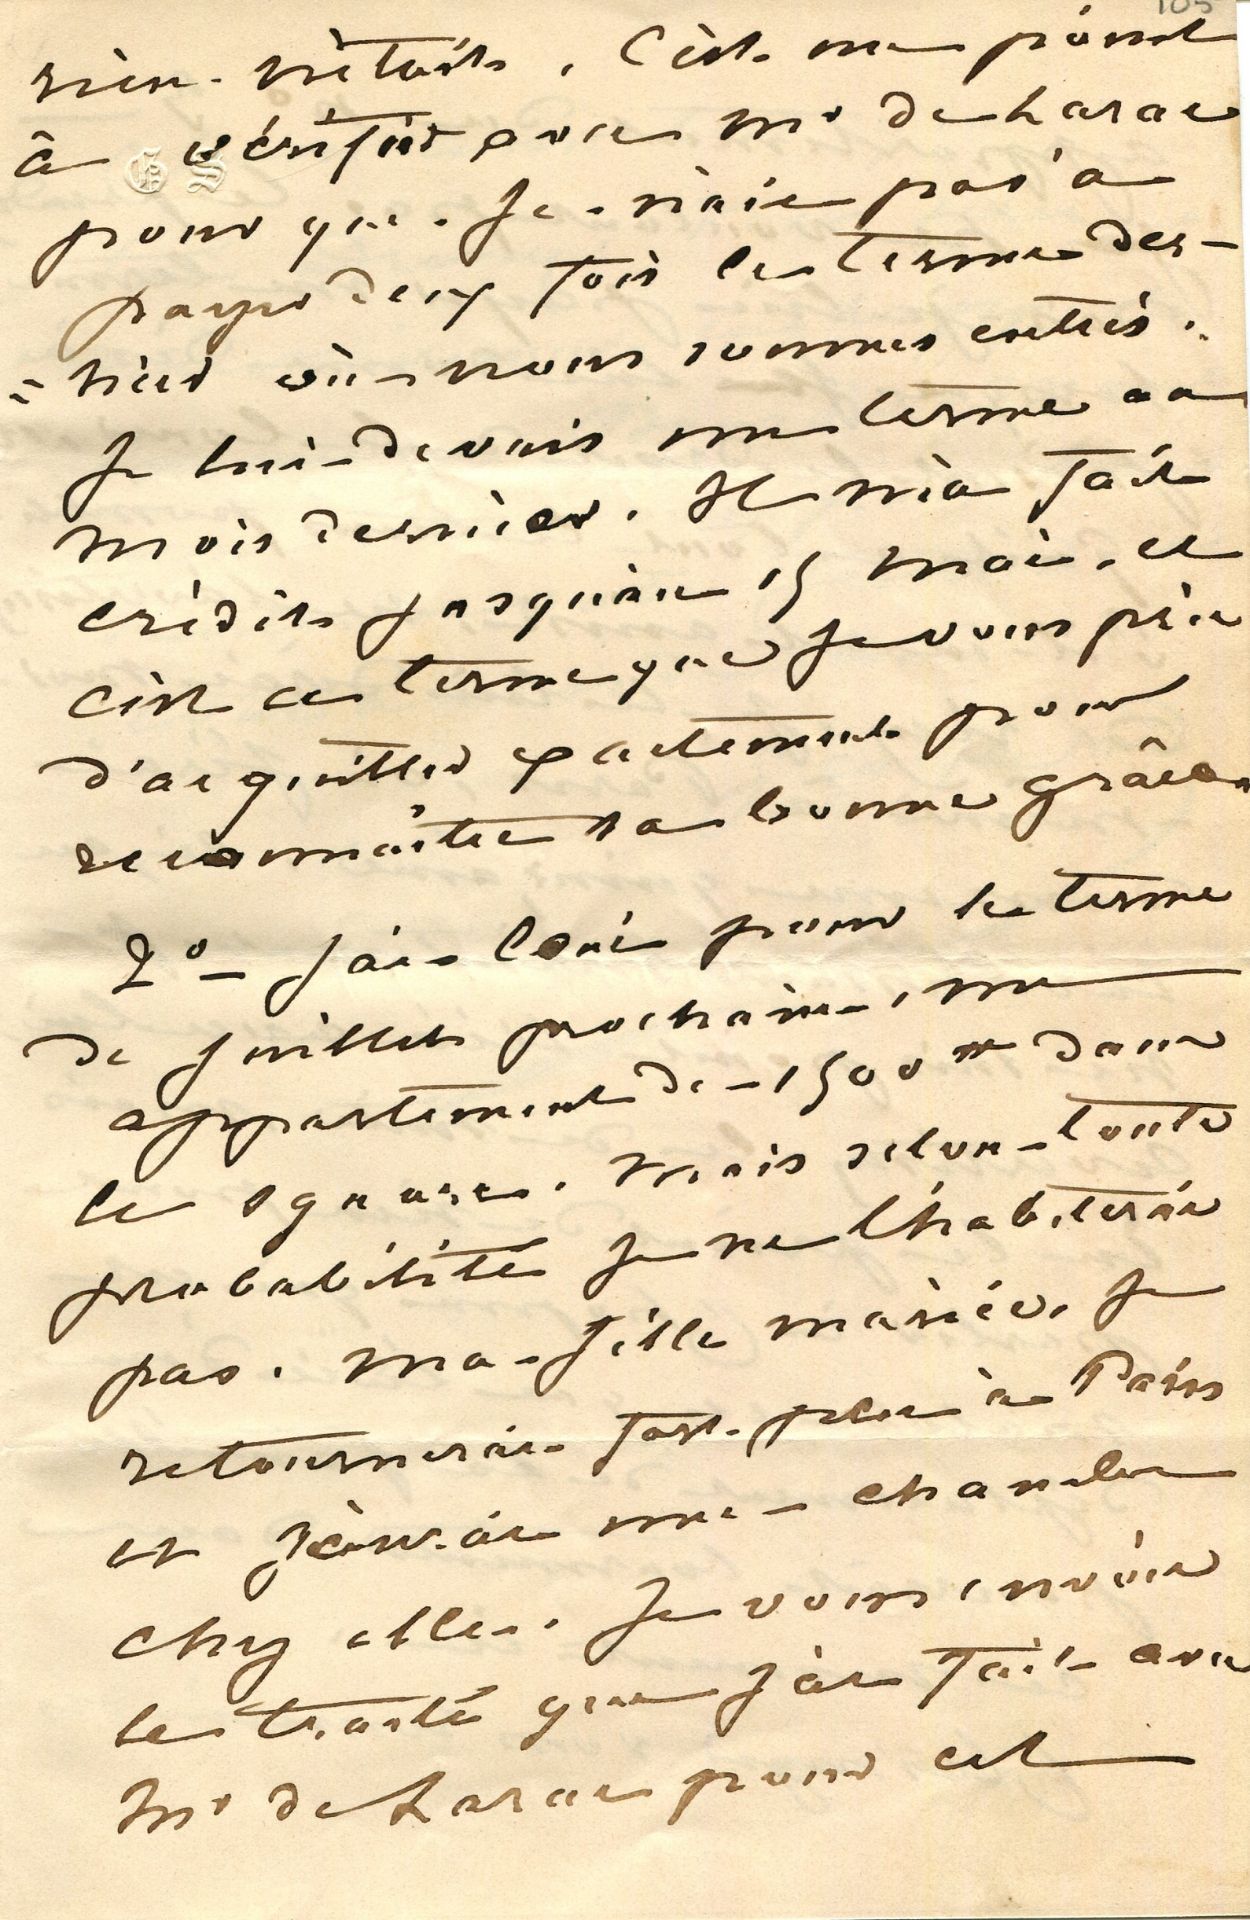 105
rien n'était. C'est un point
à vérifier avec Mr de Larac
GS
pour que je n'aie pas à
payer deux fois le terme der-
= nier où nous sommes entrés.
Je lui devais un terme au
mois dernier. Il m'a fait
crédit jusqu'au 15 mai, et
c'est ce terme que je vous prie
d'acquitter exactement pour
reconnaître sa bonne grâce.
2° – J'ai loué pour le terme
de juillet prochain, un
appartement de – 1500 ff dans
le square. Mais selon toute
probabilité je ne l'habiterai
pas. Ma fille mariée, je
retournerai fort peu à Paris
et j'aurai une chambre
chez elle. Je vous envoie
le traité que j'ai fait avec
Mr de Larac pour cet